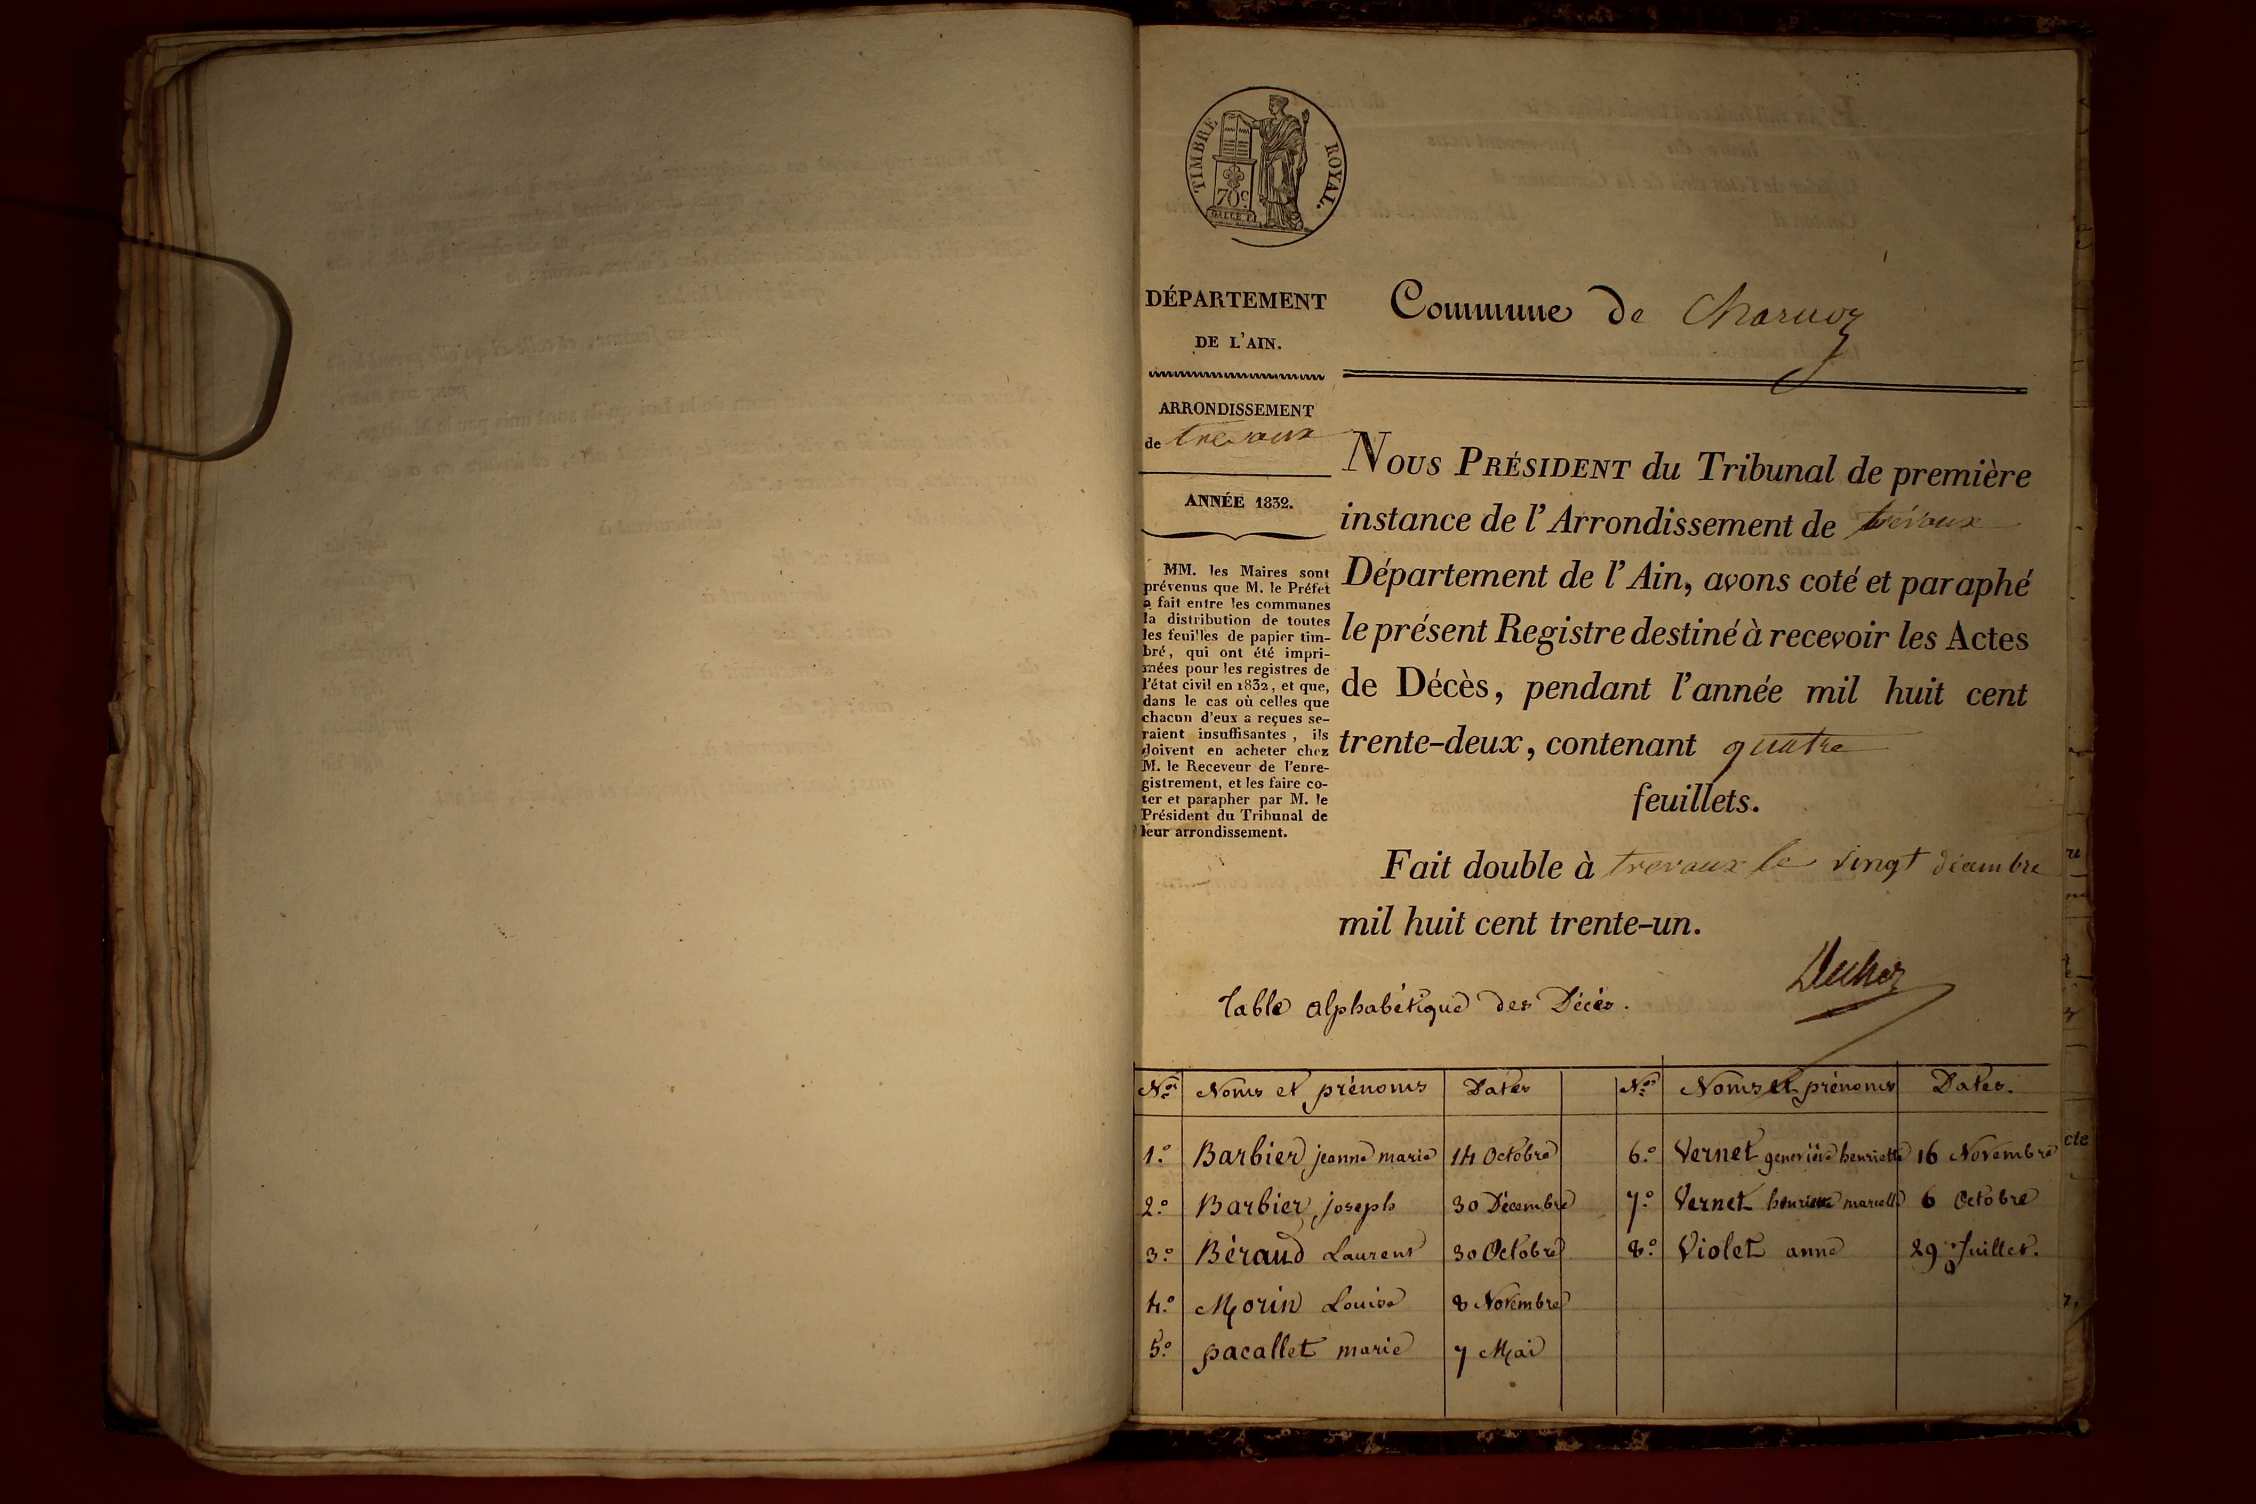 TIMBRE ROYAL.
70c
DÉPARTEMENT
DE L'AIN.
Commune de Charnoz
ARRONDISSEMENT
de trevoux
ANNÉE 1832.
MM. les Maires sont
prévenus que M. le Préfet
a fait entre les communes
la distribution de toutes
les feuilles de papier tim-
bré, qui ont été impri-
mées pour les registres de
l'état civil en 1832, et que,
dans le cas où celles que
chacun d'eux a reçues se-
raient insuffisantes, ils
doivent en acheter chez
M. le Receveur de l'enre-
gistrement, et les faire co-
ter et parapher par M. le
Président du Tribunal de
leur arrondissement.
NOUS PRÉSIDENT du Tribunal de première
instance de l'Arrondissement de trévoux
Département de l'Ain, avons coté et paraphé
le présent Registre destiné à recevoir les Actes
de Décès, pendant l'année mil huit cent
trente-deux, contenant quatre
feuillets.
Fait double à trevoux le vingt décembre
mil huit cent trente-un.
Table alphabétique des Décès.
Nos Noms et prénoms Dates
1.o Barbier jeanne marie 14 Octobre
2.o Barbier joseph 30 Décembre
3.o Béraud Laurent 30 Octobre
4.o Morin Louise 8 Novembre
5.o pacallet marie 7 Mai
Nos Noms et prénoms Dates.
6.o Vernet geneviève henriette 16 Novembre
7.o Vernet henriette marcelle 6 Octobre
8.o Violet anne 29 Juillet.